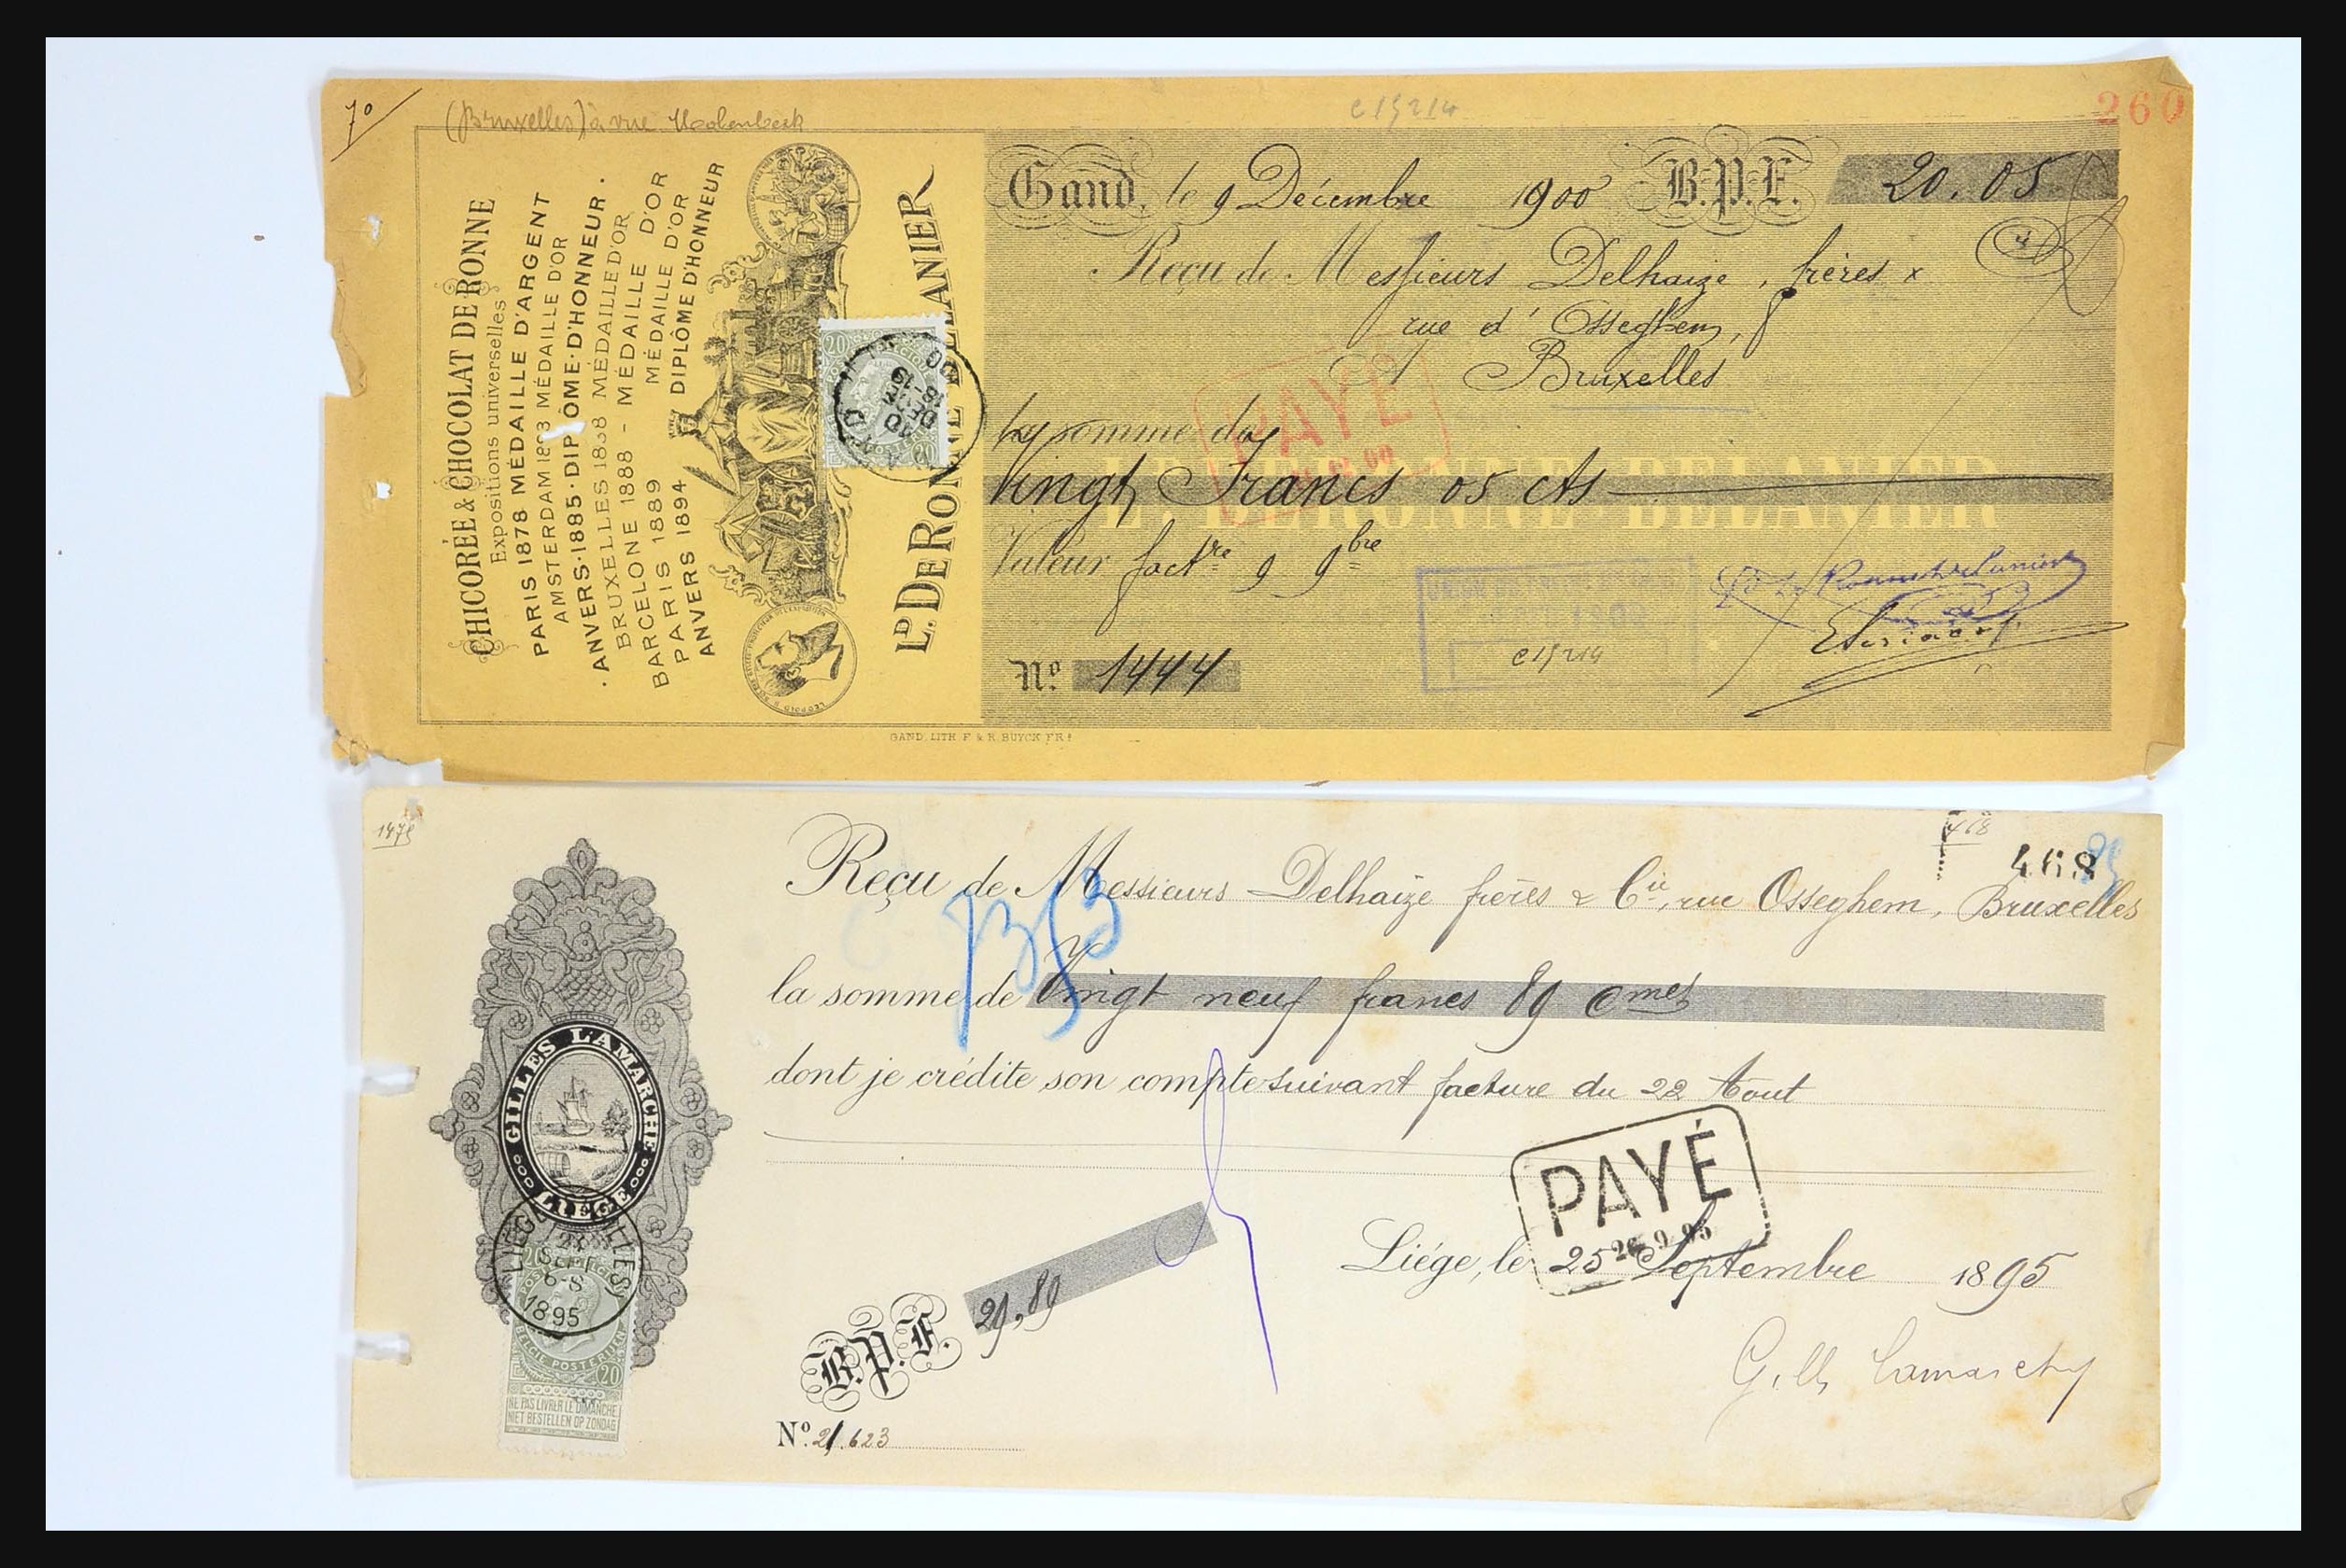 70
(Bruxelles) à vue
260
CHICORÉE & CHOCOLAT DE RONNE
Expositions universelles
PARIS 1878 MÉDAILLE D'ARGENT
AMSTERDAM 1883 MÉDAILLE D'OR
ANVERS·1885·DIPLOME·D'HONNEUR.
BRUXELLES 1888 MÉDAILLE D'OR
BARCELONE 1888 - MÉDAILLE D'OR
PARIS 1889 MÉDAILLE D'OR
ANVERS 1894 DIPLÔME D'HONNEUR
LD. DE RONNE DELANIER
Gand, le 9 Décembre 1900 B.P.F. 20.05
Reçu de Messieurs Delhaize, frères
rue d'Osseghem, 8
Bruxelles
PAYÉ
la somme de
Vingt Francs 05 cts
L. DERONNE-DELANIER
Valeur factre 9 9bre
No. 1444
GAND. LITH F. & R. BUYCK FRS
1475
468
Reçu de Messieurs Delhaize frères & Cie, rue Osseghem, Bruxelles
la somme de Vingt neuf francs 89 cmes
dont je crédite son compte suivant facture du 22 Aout
GILLES LAMARCHE
LIÈGE
SEPT
6-S
1895
BELGIE POSTERIJEN
20
NE PAS LIVRER LE DIMANCHE
NIET BESTELLEN OP ZONDAG
PAYÉ
26.9.95
Liége, le 25 Septembre 1895
B.P.F. 29,89
No. 21.623